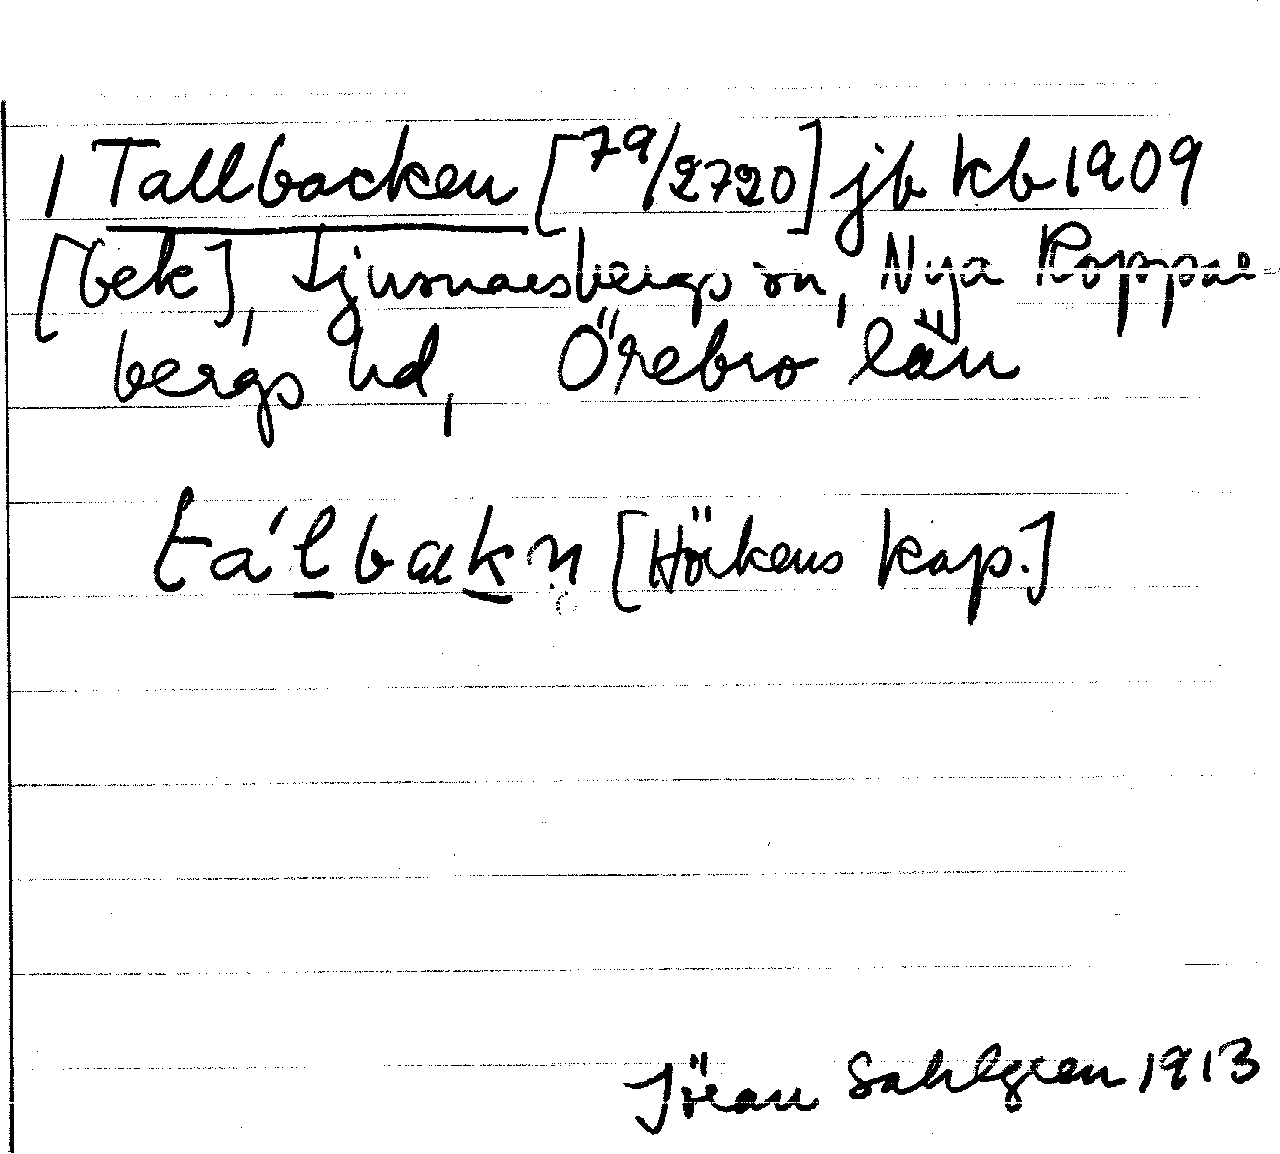 1 Tallbacken [79/2720] jb kb 1909
[bek], Ljusnarsbergs sn, Nya Koppar-
bergs hd, Örebro län
ta´lbakn [Hörkens kap.]
Jöran Sahlgren 1913